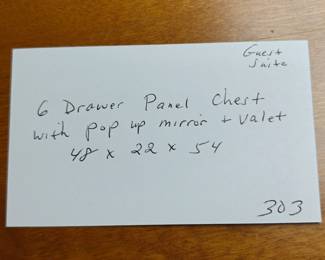 Guest
Suite
6 Drawer Panel Chest
with pop up mirror + Valet
48 x 22 x 54
303